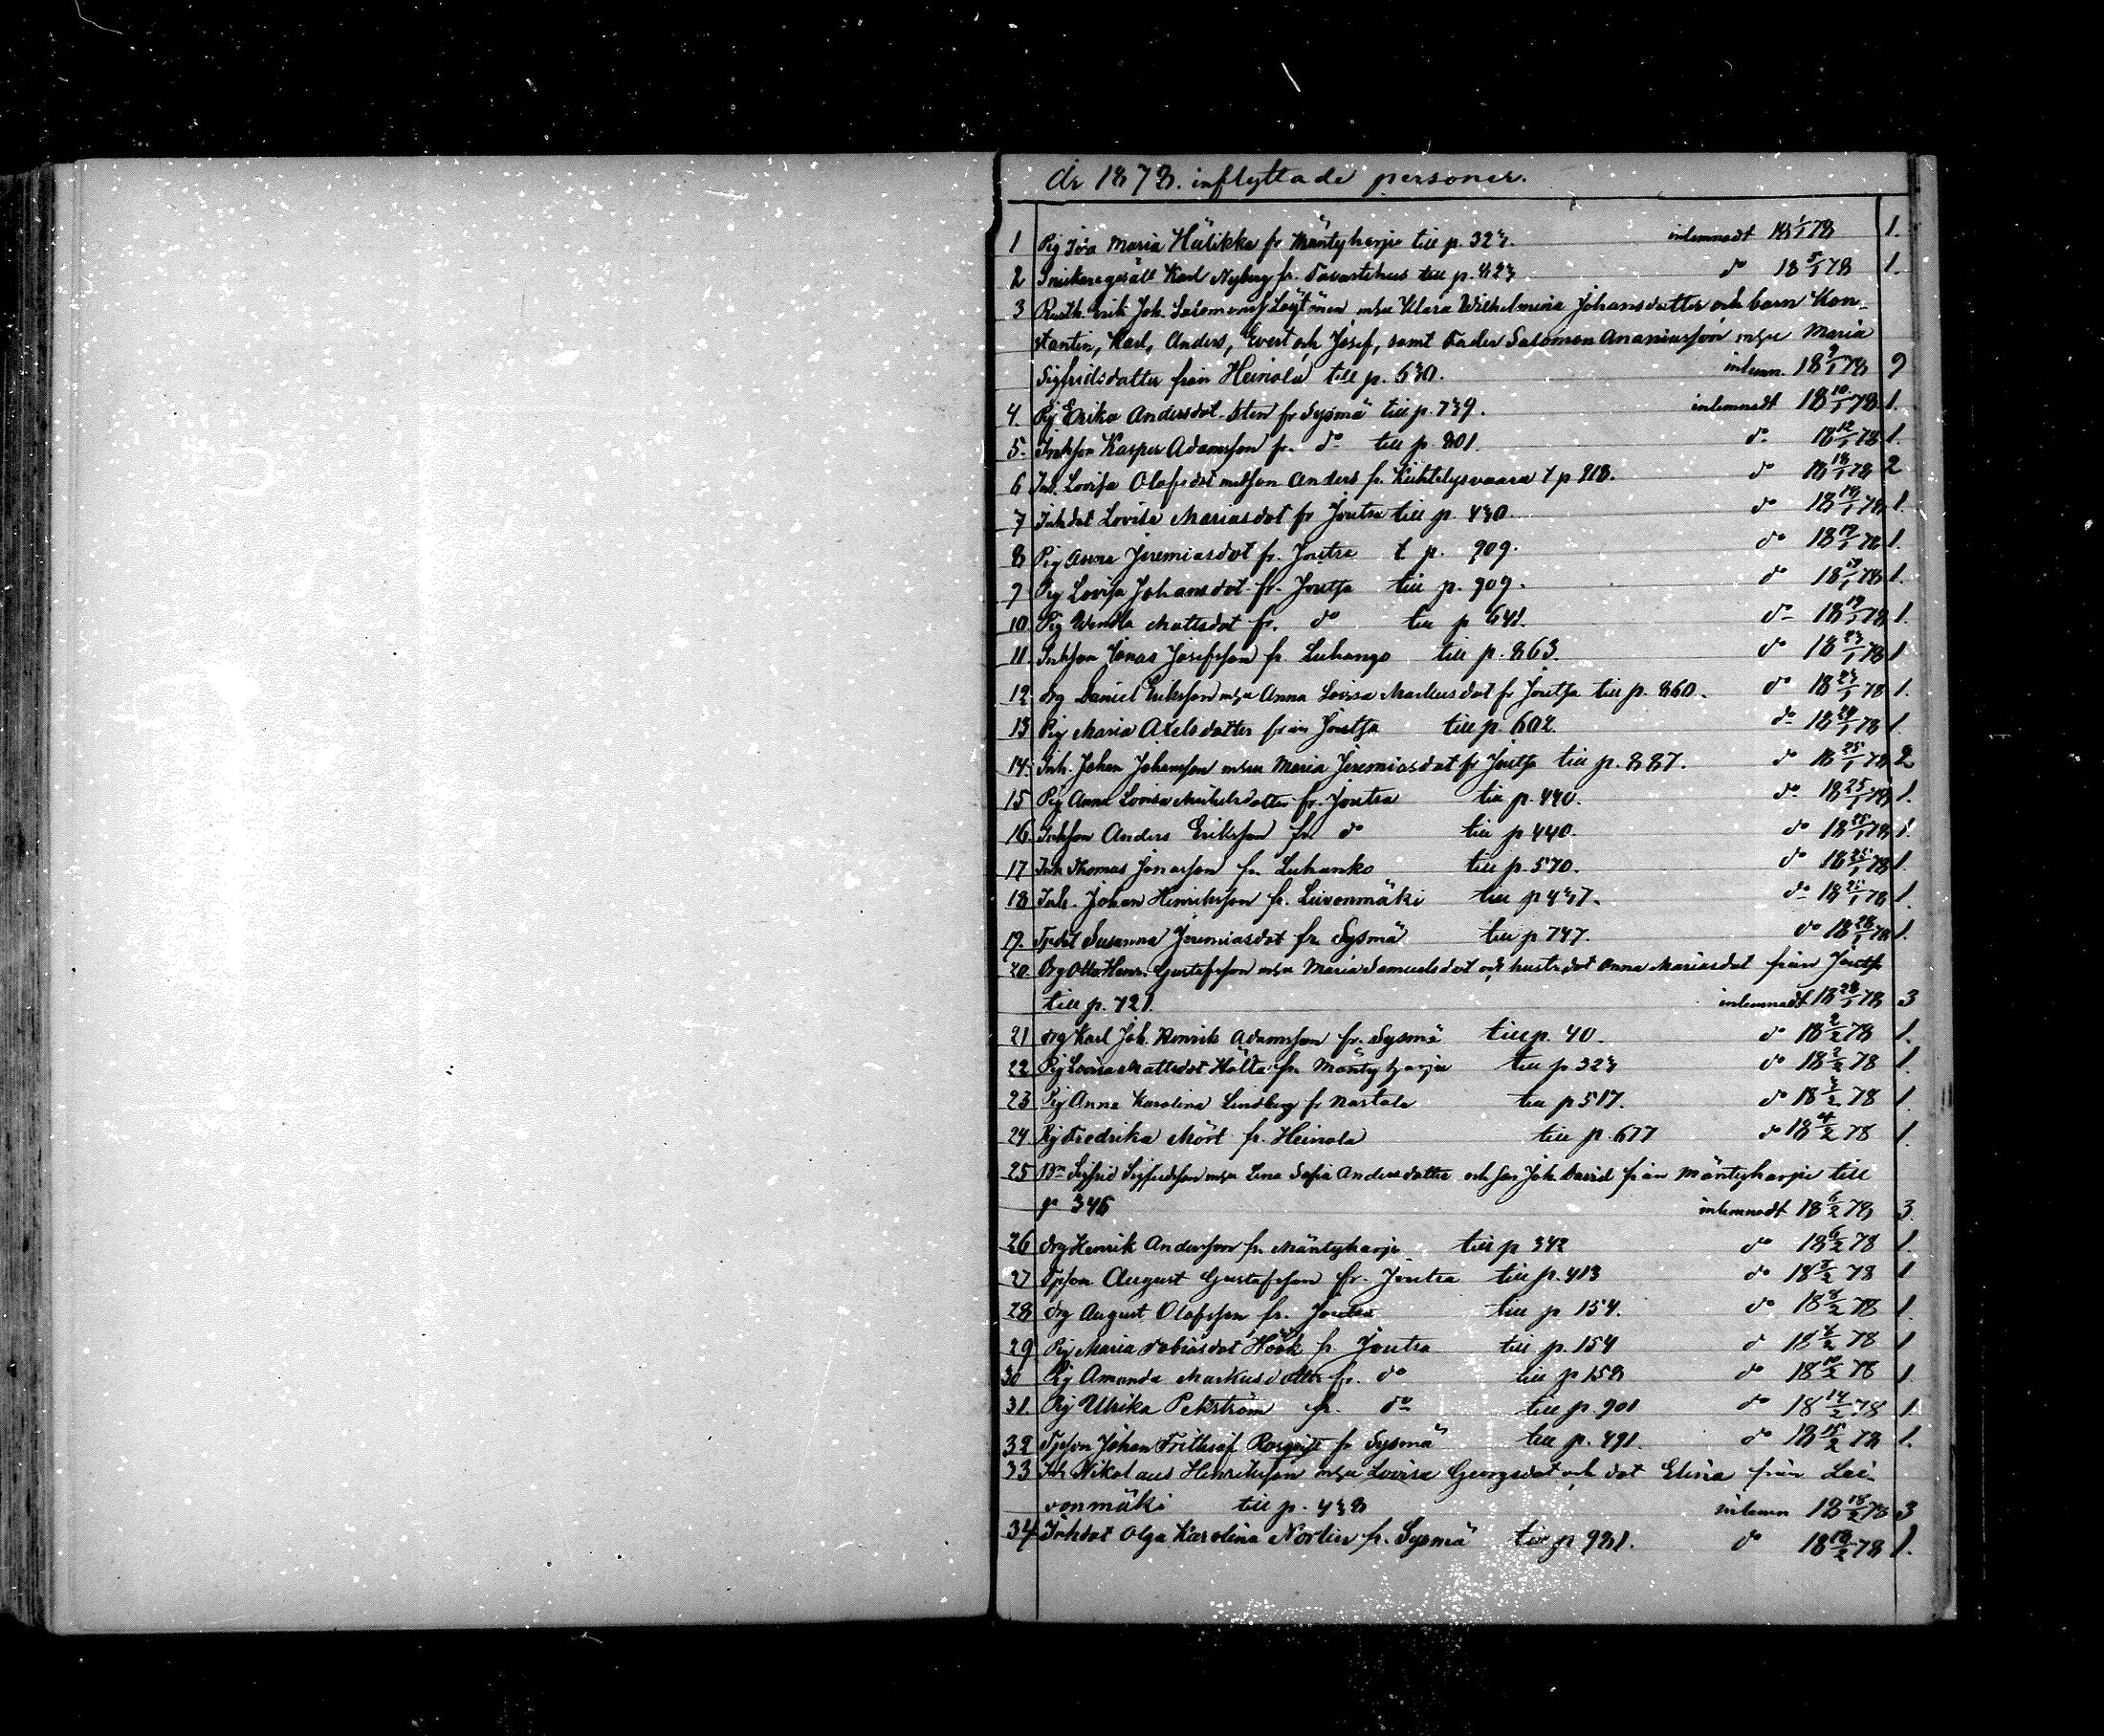 År 1878. inflyttade personer.
1 Pig Eva Maria Hälikka fr Mäntyharju till p. 323. inlemnadt 18 1/1 78 1.
2 Snickaregesäll Karl Nyberg fr. Tavastehus till p. 423 do 18 5/1 78 1.
3 Rusth. Erik Joh. Salomonss Löytönen m hu Klara Wilhelmina Johansdotter och barn Kon-
stantin, Karl, Anders, Evert och Josef, samt Fader Salomon Ananiasson m hu Maria
Sigfridsdotter från Heinola till p. 630. inlemn. 18 9/1 78 9
4. Pig Erika Andersdot. Sten fr Sysmä till p. 739. inlemnadt 18 10/1 78 1.
5. Inhson Kasper Adamsson fr. do till p. 801. do 18 12/1 78 1.
6 Inh. Lovisa Olofsdot med son Anders fr. Kiihtelysvaara t p 918. do 18 18/1 78 2
7 Inhdot Lovisa Mariasdot fr Joutsa till p. 430 do 18 19/1 78 1.
8 Pig Anna Jeremiasdot fr. Joutsa t. p. 909. do 18 19/1 78 1.
9 Pig Lovisa Johansdot fr. Joutsa till p. 909. do 18 19/1 78 1.
10 Pig Wendla Mattsdot fr. do till p 641. do 18 19/1 78 1.
11. Inhson Jonas Josefsson fr Luhango till p. 863. do 18 23/1 78 1
12 drg Daniel Eriksson m hu Anna Lovisa Markusdot fr Joutsa till p. 860. do 18 23/1 78 1.
13 Pig Maria Axelsdotter från Joutsa till p. 602. do 18 /1 78 1.
14. Inh. Johan Johansson m hu Maria Jeremiasdot fr Joutsa till p. 887. do 18 25/1 78 2
15 Pig Anna Lovisa Mickelsdotter fr. Joutsa till p. 440. do 18 25/1 78 1.
16. Inhson Anders Eriksson fr do till p 440. do 18 25/1 78 1.
17 Inh Thomas Jonasson fr. Luhanko till p. 570. do 18 25/1 78 1.
18 Inh. Johan Henriksson fr. Leivonmäki till p 437. do 18 25/1 78 1.
19. Tpdot Susanna Jeremiasdot fr. Sysmä till p 747. do 18 28/1 78 1.
20. Drg Otto Henr. Gustafsson m hu Maria Samuelsdot och hustr. dot Anna Mariasdot från Joutsa
till p. 721. inlemnadt 18 28/1 78 3
21 drg Karl Joh. Henrik Adamsson fr. Sysmä till p. 40. do 18 2/2 78 1.
22 Pig Lovisa Mattsdot Hölttä fr. Mäntyharju till p 323 do 18 2/2 78 1.
23 Pig Anna Karolina Lindberg fr Nastola till p 517. do 18 /2 78 1.
24 Pig Fredrika Mört fr. Heinola till p. 677 do 18 4/2 78 1.
25 Bn Sigfrid Sigfridsson m hu Lena Sofia Andersdotter och son Joh. David från Mäntyharju till
p 346 inlemnadt 18 6/2 78 3.
26 drg Henrik Andersson fr. Mäntyharju till p 342 do 18 6/2 78 1.
27 Tpson August Gustafsson fr. Joutsa till p. 413 do 18 8/2 78 1
28 drg August Olofsson fr. Joutsa till p 154. do 18 8/2 78 1.
29. Pig Maria Tobiasdot Höök fr Joutsa till p. 154 d 18 8/2 78 1
30 Pig Amanda Markusdotter fr. do till p 158 do 18 10/2 78 1.
31. Pig Ulrika Pekström fr. do till p. 901 do 18 14/2 78 1.
32 Tpson Johan Frithiof Rosqvist fr Sysmä till p. 491. do 18 15/2 78 1.
33 Inh Nikolaus Henriksson m hu Lovisa Georgsdot och dot Elina från Lei-
vonmäki till p. 438 inlemn 18 18/2 78 3
34 Inhdot Olga Karolina Norlin fr. Sysmä till p 981. do 18 18/2 78 1.